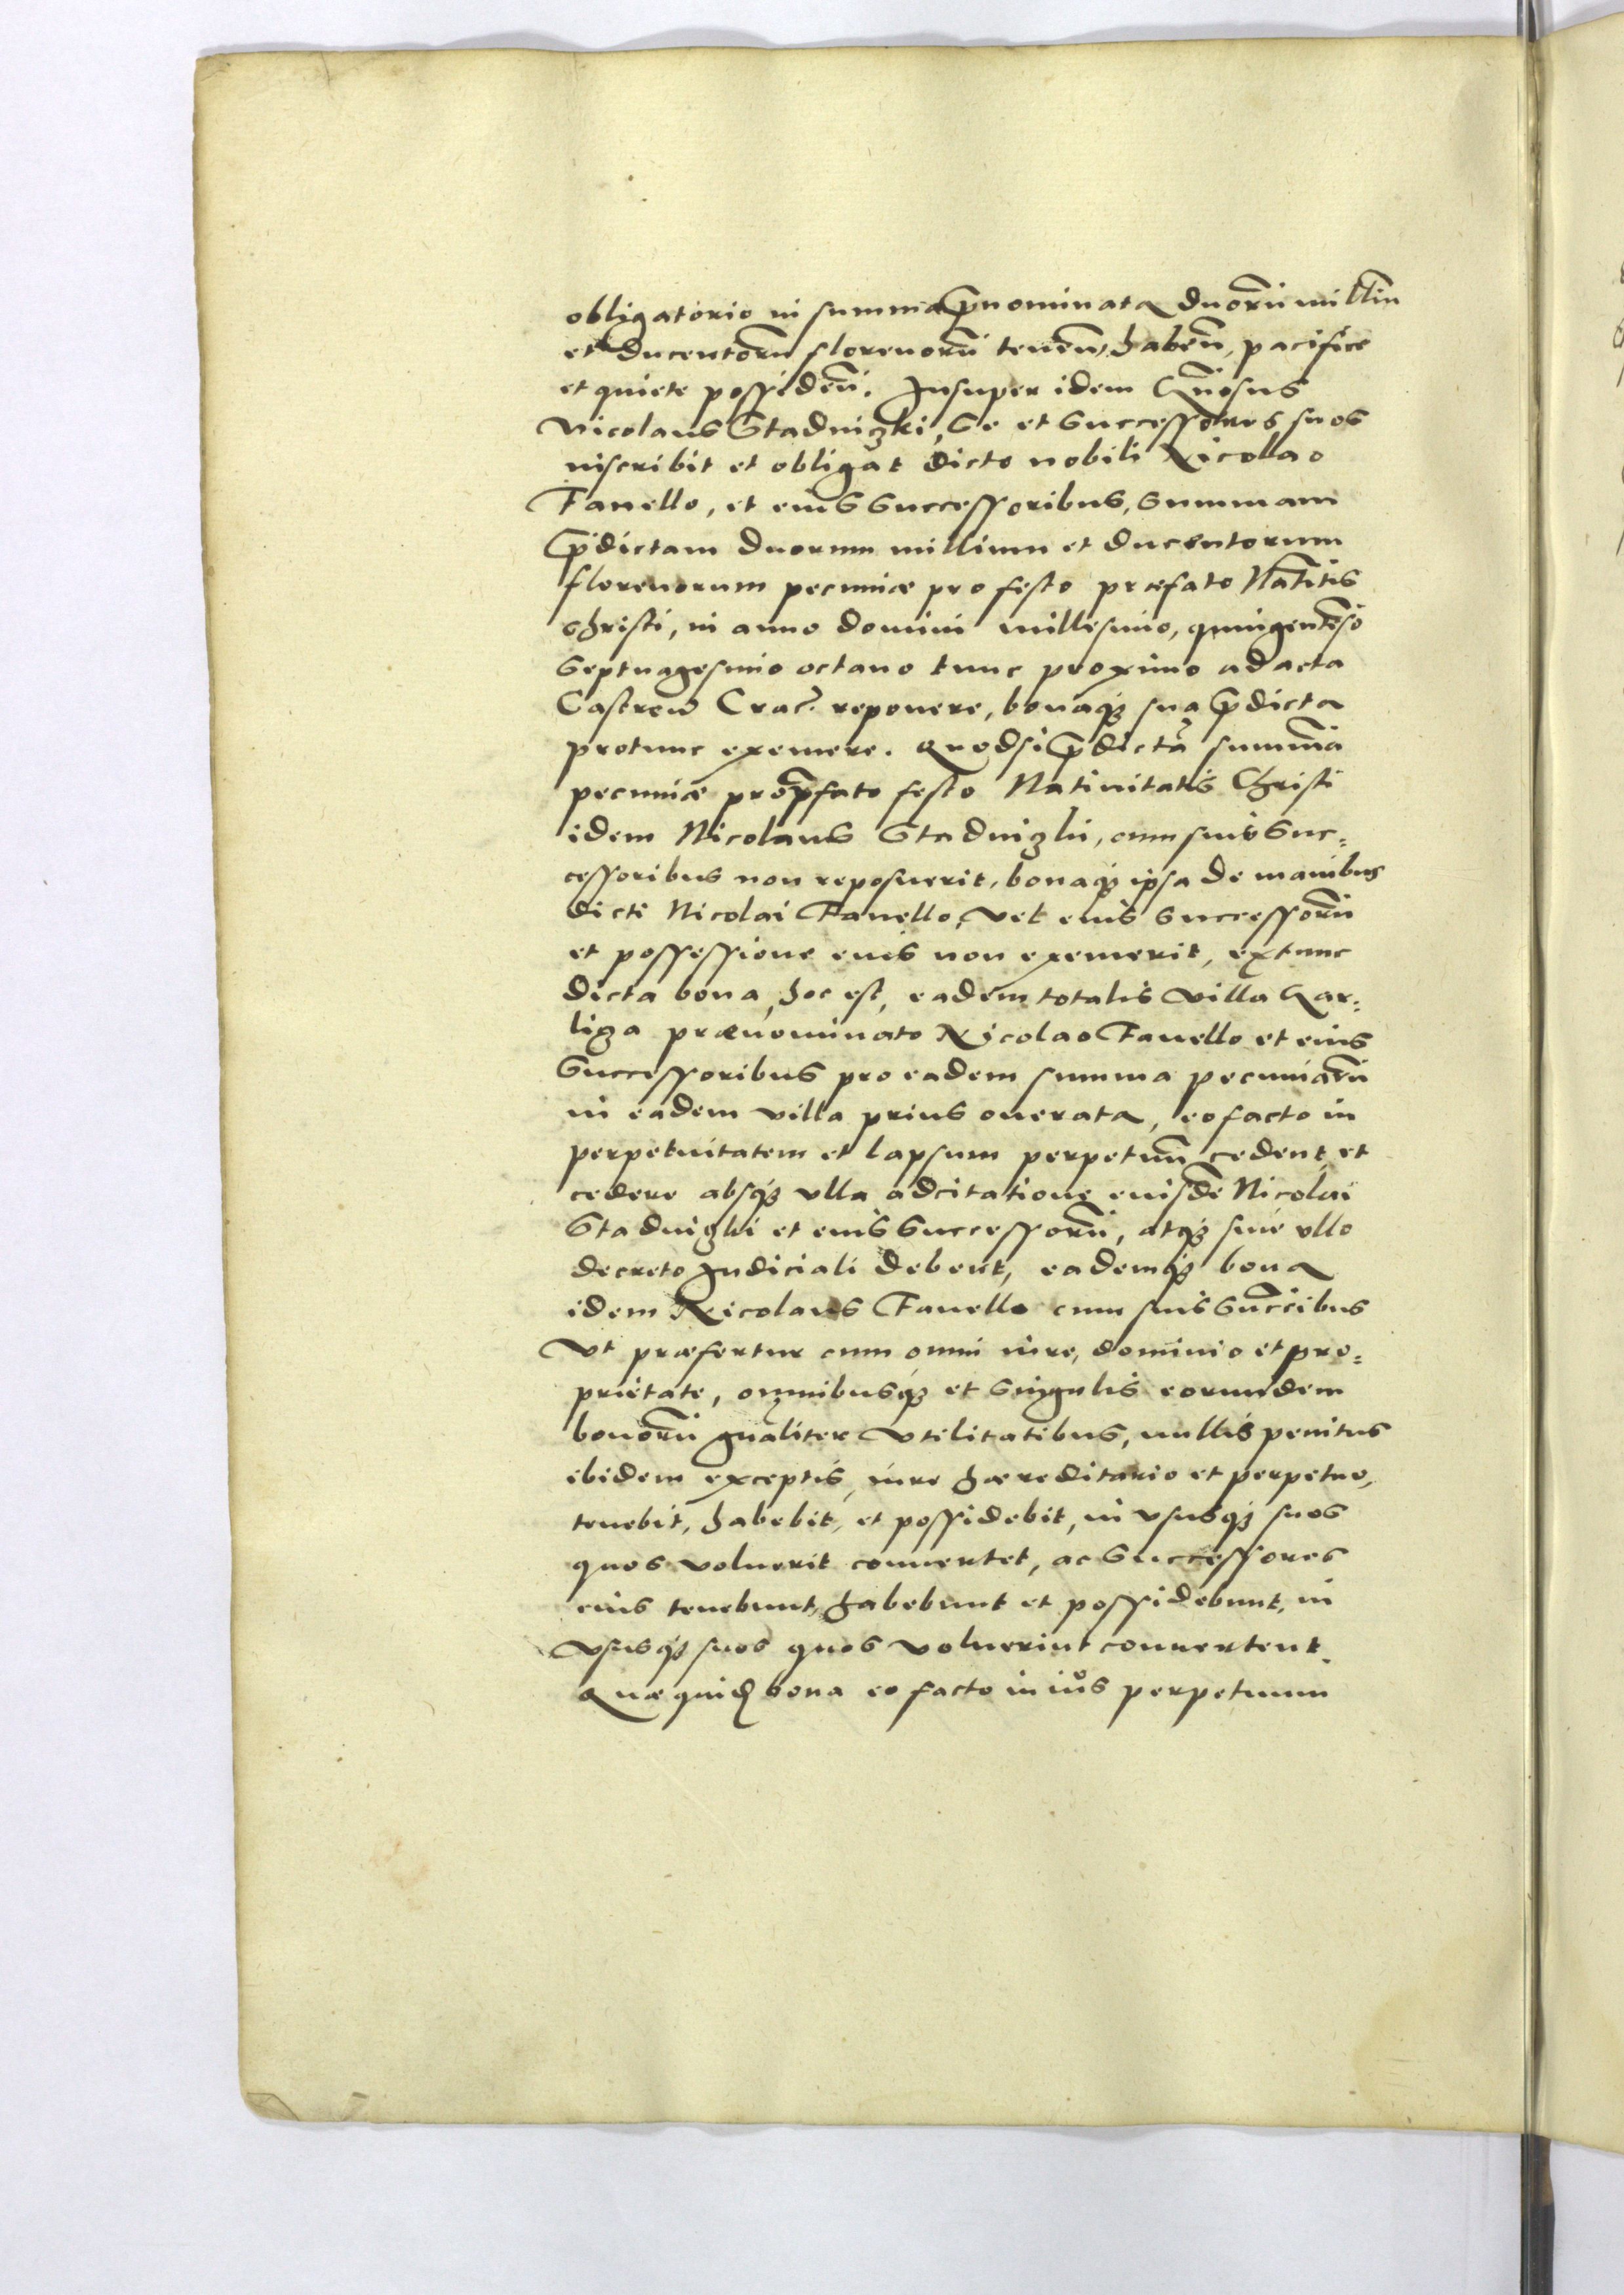 obligatorio in summa p̄nominata duorū milliū
et ducentorū florenorū teneñ, habeñ, pacifice
et quiete possideñ. Insuper idem Gn̄osus
Nicolaus Stadnizki, se et successores suos
inscribit et obligat dicto nobili Nicolao
Fanello, et eius successoribus, summam
p̄dictam duorum millium et ducentorum
florenorum pecuniæ pro festo præfato Natītis
christi, in anno domini millesimo, quingentē̄so
septuagesimo octavo tunc proximo ad acta
Castreñ Crac̃. reponere, bonaqꝫ sua p̄dicta
protunc exemere. Quodsi p̄dictā summā
pecuniæ pro p̄fato festo Nativitatis Christi
idem Nicolaus Stadnizki, cum suis suc=
cessoribus non reposuerit, bonaqꝫ ipsa de manibus
dicti Nicolai Fanello, vel eius successorū
et possessione eius non exemerit, extunc
dicta bona, hoc est, eadem totalis villa Gar=
liza prænominato Nicolao Fanello et eius
successoribus pro eadem summa pecuniarū
in eadem villa prius onerata, eo facto in
perpetuitatem et lapsum perpetuū cedent, et
cedere absqꝫ ulla adcitatione eiusdē Nicolai
Stadnizki et eius successorū, atqꝫ sine ullo
decreto Iudiciali debent, eademqꝫ bona
idem Nicolaus Fanello cum suis succ̄ibus
Ut præfertur cum omni iure, dominio et pro=
prietate, omnibusqꝫ et singulis eorundem
bonorū gn̄aliter utilitatibus, nullis penitus
ibidem exceptis, iure hæreditario et perpetuo,
tenebit, habebit, et possidebit, in ususqꝫ suos
quos voluerit convertet, ac successores
eius tenebunt, habebunt et possidebunt, in
ususqꝫ suos quos voluerint convertent.
Quæ quid bona eo facto in ius perpetuum